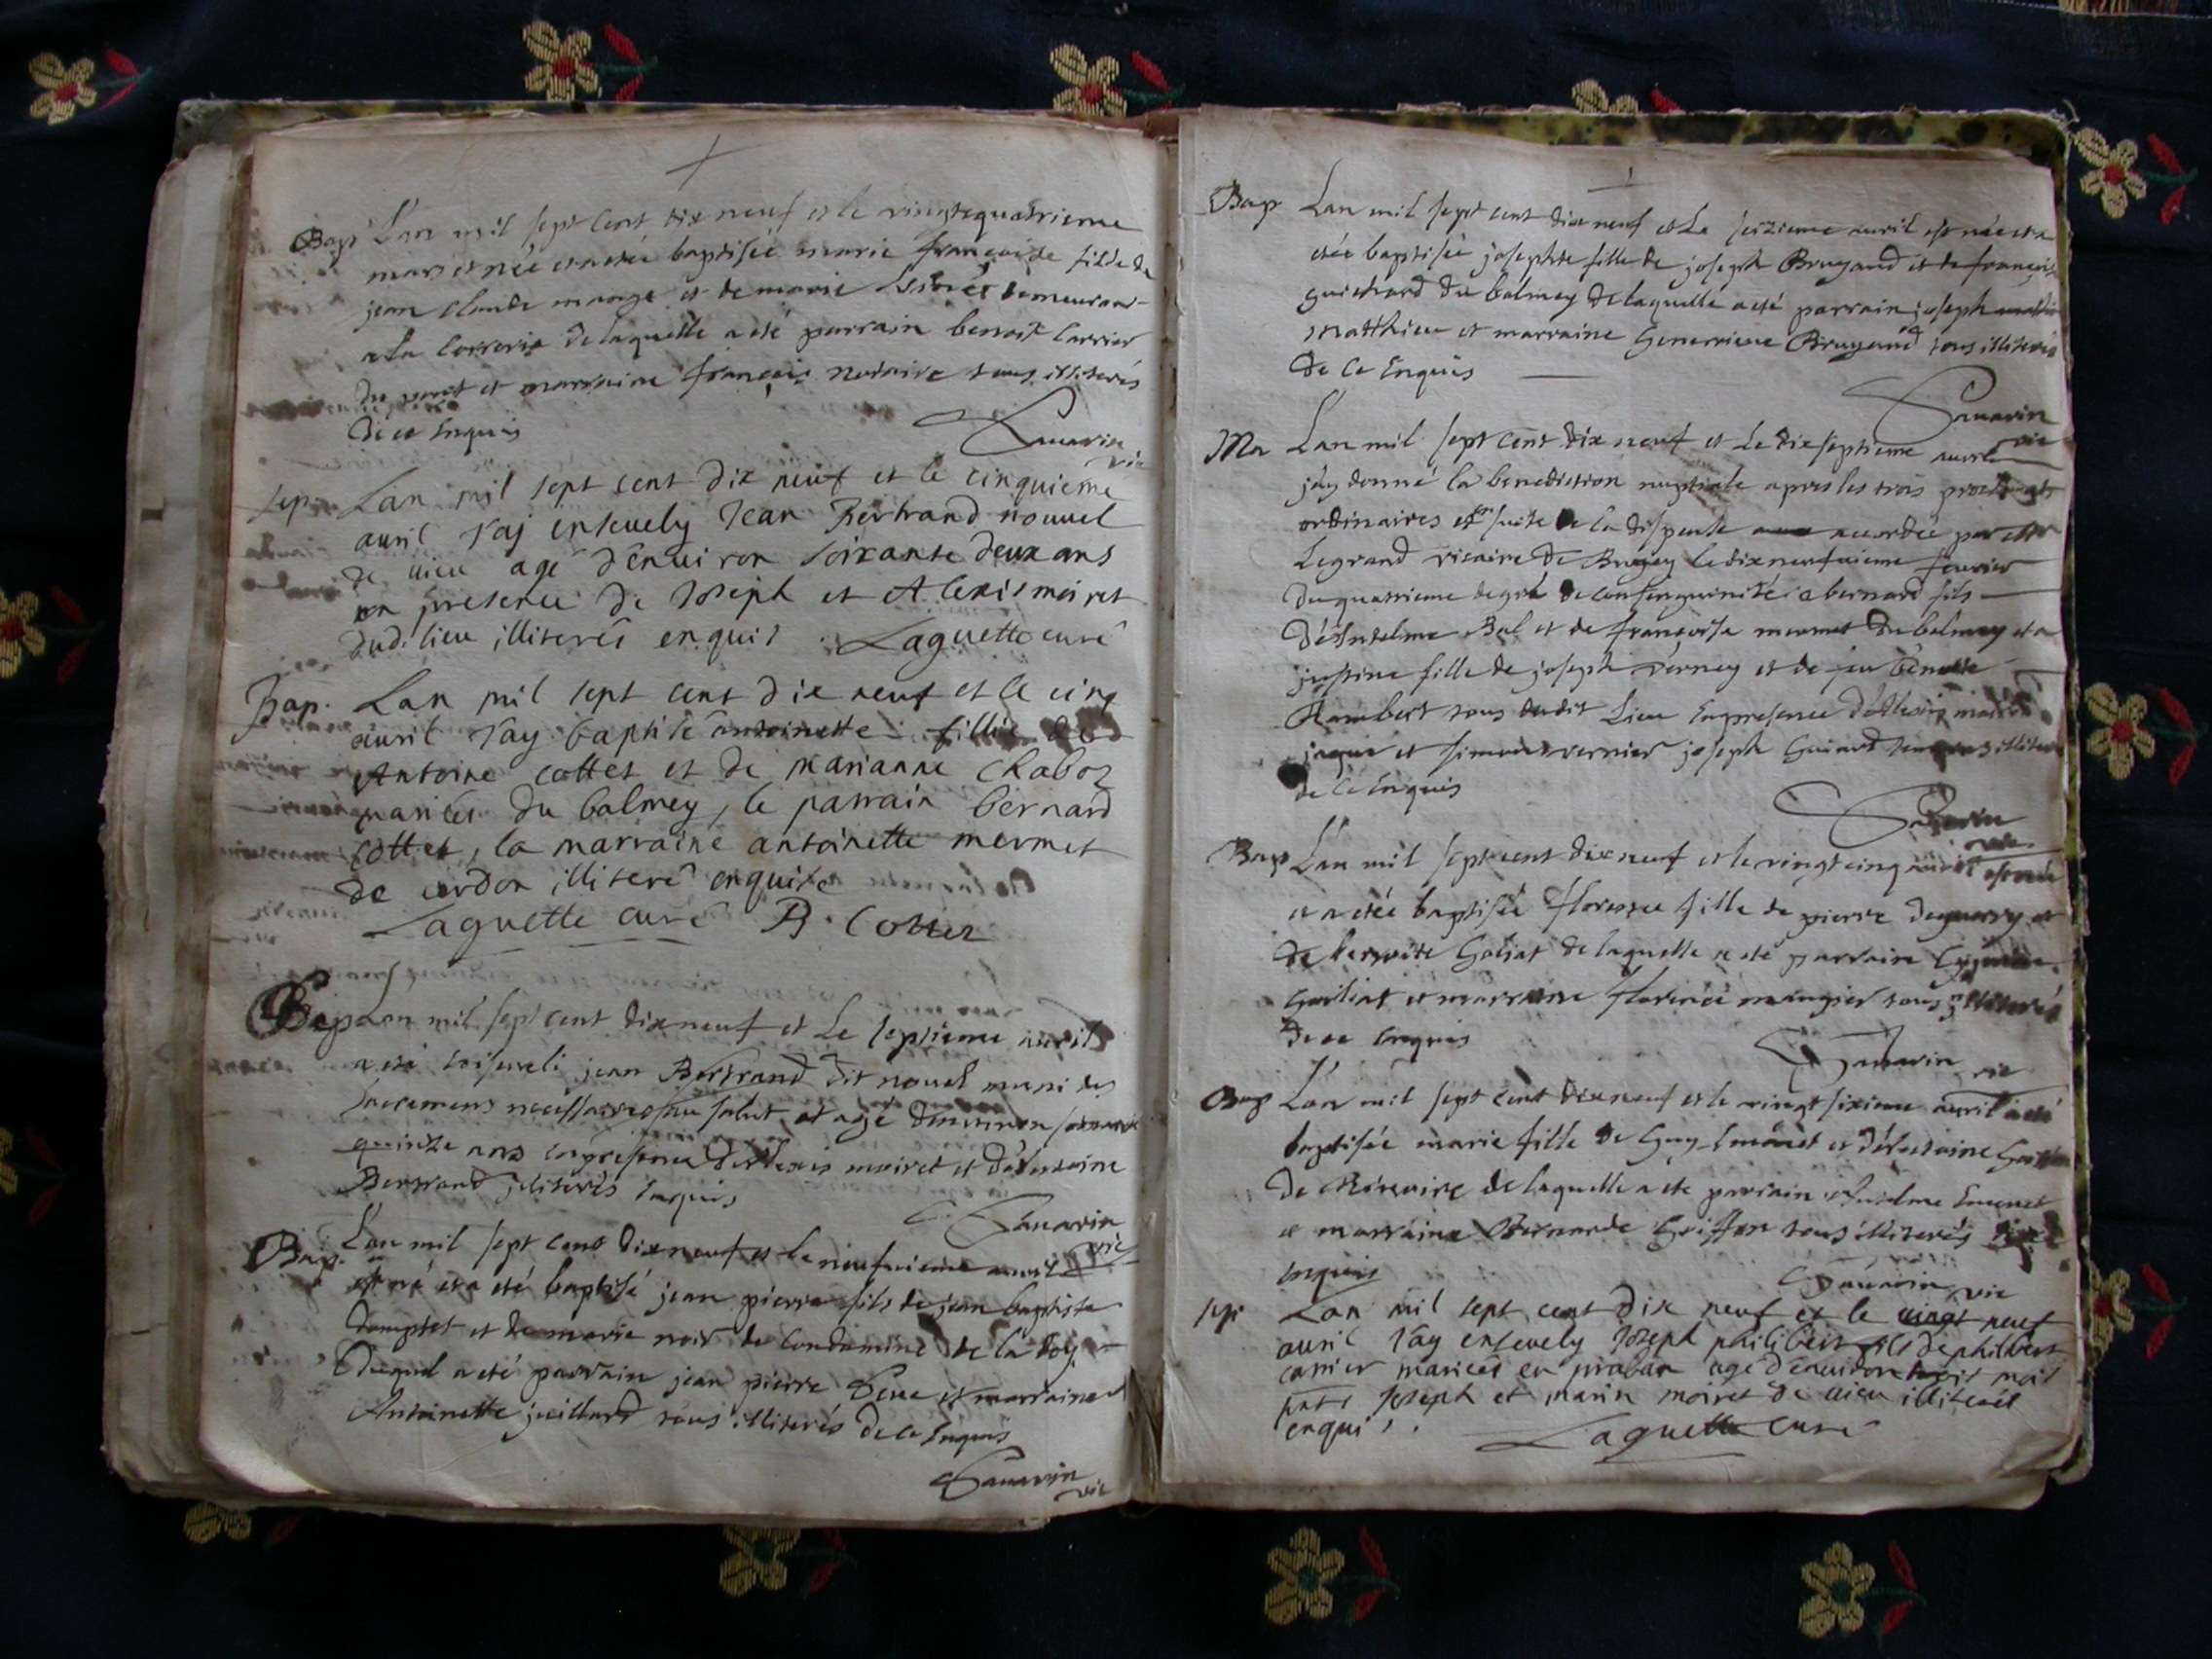 Bap Lan mil sept cent dix neuf et le vingtequatrieme
mars est née et a etée baptisée marie françoise fille de
jean claude mange et de marie demeurant
a la correrie de laquelle a eté parrain benoist carrier
du et marraine françoise notaire tous illiterés
de ce enquis
Sauarin vic
sep. Lan mil sept cent dix neuf et le cinquieme
auril j'aj enseuely Jean Bertrand nouuel
de uieu agé d'enuiron soixante deux ans
en presence de Joseph et Alexis moiret
dud. lieu illiterés enquis. Laguette curé
Bap. Lan mil sept cent dix neuf et le cinq
auril j'ay baptisé antoinette fillie de
Antoine cottet et de marianne Chaboz
mariés du balmey, le parrain bernard
cottet, la marraine antoinette mermet
de cerdon illiteré enquise
Laguette curé B. Cottet
Sep Lan mil sept cent dix neuf et le septieme auril
a eté enseueli jean Bertrand dit nouel muni des
sacremens necessaires au salut et agé denuiron soixante
quinze ans en presence d'Alexis moiret et d'Antoine
Bertrand illiterés enquis
Sauarin vic
Bap. Lan mil sept cens dix neuf et le neufuieme auril
est né et a eté baptisé jean pierre fils de jean baptiste
dompter et de marie noir de condamine de la doy
duquel a eté parrain jean pierre et marraine
Antoinette juillard tous illiterés de ce enquis
Sauarin vic
Bap Lan mil sept cent dix neuf et le seizieme auril est née et a
etée baptisée josephte fille de joseph Brugand et de françoise
guichard du balmey de laquelle a eté parrain joseph
matthieu et marraine Geneuieue Brugand tous illiterés
de ce enquis
Sauarin vic
Ma Lan mil sept cent dix neuf et le dix septieme auril
j'ay donné la benediction nuptiale apres les trois
ordinaires et suite de la dispense accordée par
Legrand vicaire de Bugey le dix neufuieme feurier
du quatrieme degré de consenguinité a bernard fils
d'Anselme Bal et de françoise mermet du balmey et a
justine fille de joseph verney et de feu benoite
Rambert tous dudit lieu en presence d'Alexis
et simon vernier joseph Guinard tous illiterés
de ce enquis
Sauarin vic
Bap Lan mil sept cent dix neuf et le vingt cinq auril est née
et a etée baptisée florence fille de pierre deguerry et
de benoite Goliat de laquelle a eté parrain
Goiliat et marraine florence mangier tous illiterés
de ce enquis
Sauarin vic
Bap Lan mil sept cent dix neuf et le vingt sixieme auril a eté
baptisée marie fille de Guy et d'Antoine
de de laquelle a eté parrain Anselme
et marraine Bernarde Griffon tous illiterés
enquis
Sauarin vic
sep. Lan mil sept cent dix neuf et le uingt neuf
auril j'ay enseuely Joseph philibert fils de philibert
carrier mariés en agé d'enuiron trois mois
pnts Joseph et marin moiret de uieu illiterés
enquis.
Laguette curé